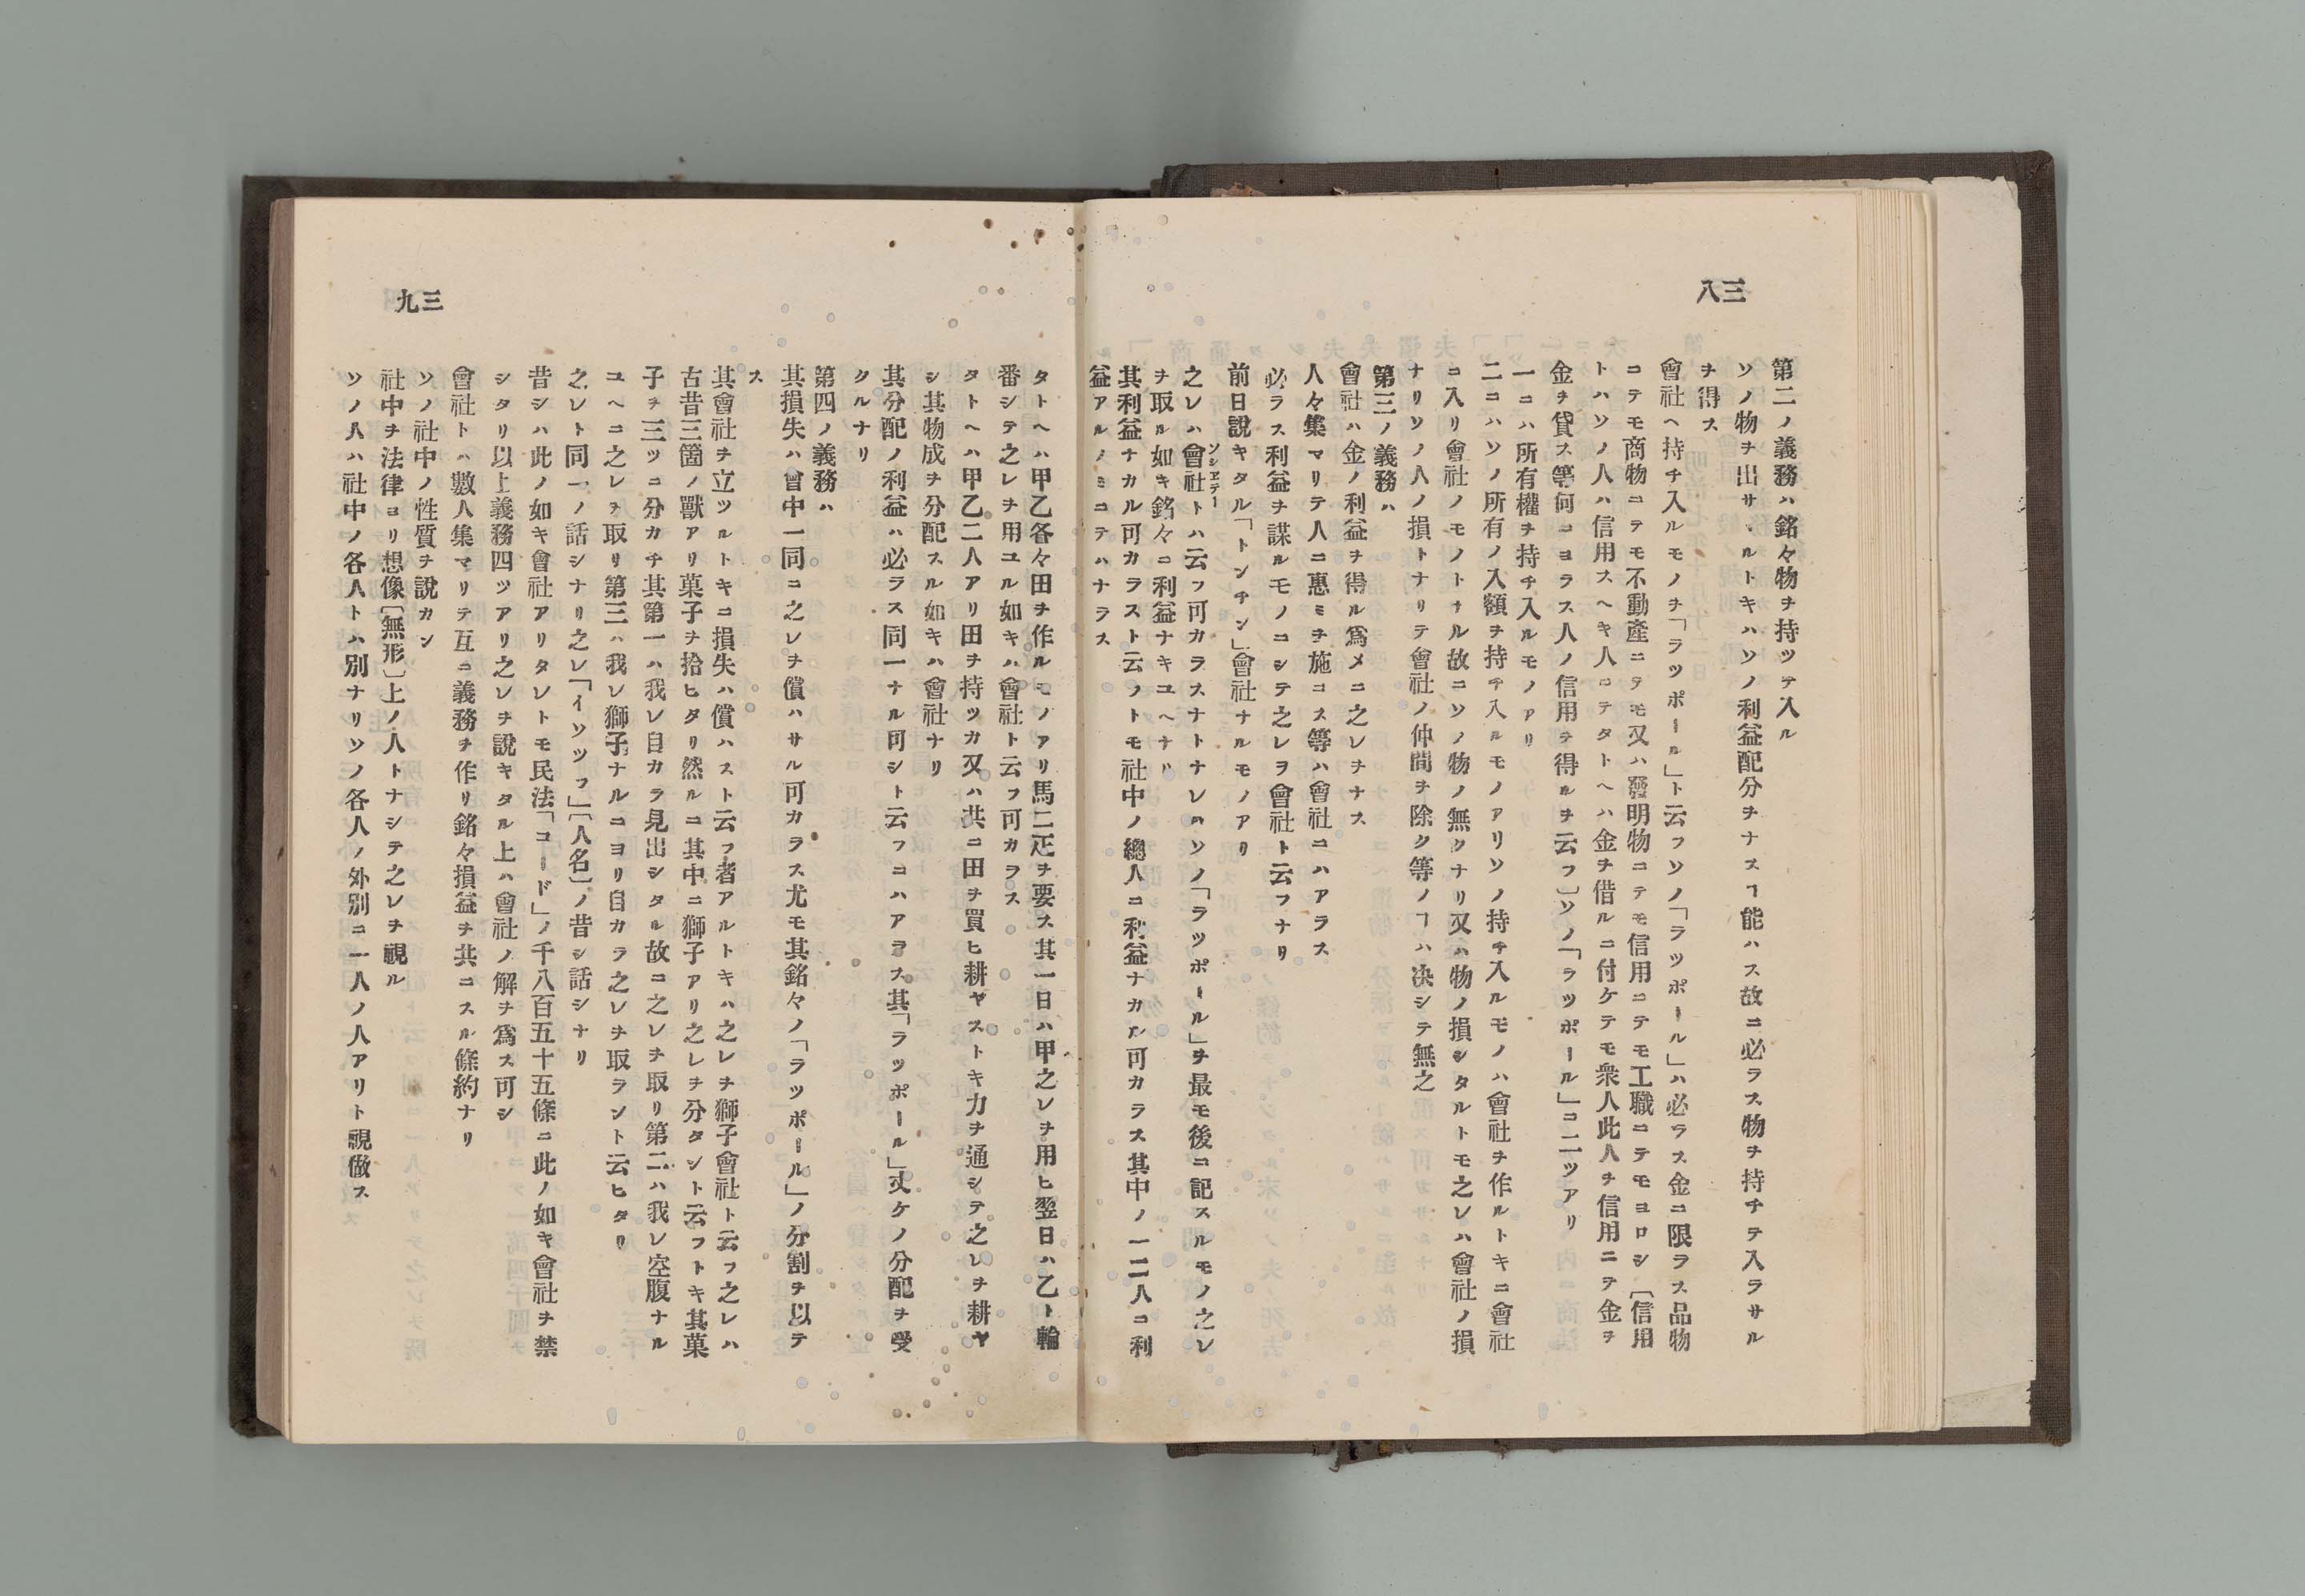 三八
第二ノ義務ハ銘々物ヲ持ツテ入ル
ソノ物ヲ出サヽルトキハソノ利益配分ヲナスヿ能ハス故ニ必ラス物ヲ持チテ入ラサル
ヲ得ス
會社ヘ持チ入ルモノヲ「ラツポール」ト云フソノ「ラツポール」ハ必ラス金ニ限ラス品物
ニテモ商物ニテモ不動產ニテモ又ハ發明物ニテモ信用ニテモ工職ニテモヨロシ〔信用
トハソノ人ハ信用スヘキ人ニテタトヘハ金ヲ借ルニ付ケテモ衆人此人ヲ信用ニテ金ヲ
金ヲ貸ス等何ニヨラス人ノ信用ヲ得ルヲ云フ〕ソノ「ラツポール」ニ二ツアリ
一ニハ所有權ヲ持チ入ルモノアリ
二ニハソノ所有ノ入額ヲ持チ入ルモノアリソノ持チ入ルモノハ會社ヲ作ルトキニ會社
ニ入リ會社ノモノトナル故ニソノ物ノ無クナリ又ハ物ノ損シタルトモ之レハ會社ノ損
ナリソノ人ノ損トナリテ會社ノ仲間ヲ除ク等ノヿハ決シテ無之
第三ノ義務ハ
會社ハ金ノ利益ヲ得ル爲メニ之レヲナス
人々集マリテ人ニ惠ミヲ施コス等ハ會社ニハアラス
必ラス利益ヲ謀ルモノニシテ之レヲ會社ト云フナリ
前日說キタル「トンチン」會社ナルモノアリ
之レハ會社トハ云フ可カラスナトナレハソノ「ラツポール」ヲ最モ後ニ記スルモノ之レ
ソシヱテー
ヲ取ル如キ銘々ニ利益ナキユヘナリ
其利益ナカル可カラスト云フトモ社中ノ總人ニ利益ナカル可カラス其中ノ一二人ニ利
益アルノミニテハナラス
タトヘハ甲乙各々田ヲ作ルモノアリ馬二疋ヲ要ス其一日ハ甲之レヲ用ヒ翌日ハ乙ト輪
番シテ之レヲ用ユル如キハ會社ト云フ可カラス
タトヘハ甲乙二人アリ田ヲ持ツカ又ハ共ニ田ヲ買ヒ耕ヤストキ力ヲ通シテ之レヲ耕ヤ
シ其物成ヲ分配スル如キハ會社ナリ
其分配ノ利益ハ必ラス同一ナル可シト云フニハアラス其「ラツポール」丈ケノ分配ヲ受
クルナリ
第四ノ義務ハ
其損失ハ會中一同ニ之レヲ償ハサル可カラス尤モ其銘々ノ「ラツポール」ノ分割ヲ以テ
ス
其會社ヲ立ツルトキニ損失ハ償ハスト云フ者アルトキハ之レヲ獅子會社ト云フ之レハ
古昔三箇ノ獸アリ菓子ヲ拾ヒタリ然ルニ其中ニ獅子アリ之レヲ分タント云フトキ其菓
子ヲ三ツニ分カチ其第一ハ我レ自カラ見出シタル故ニ之レヲ取リ第二ハ我レ空腹ナル
ユヘニ之レヲ取リ第三ハ我レ獅子ナルニヨリ自カラ之レヲ取ラント云ヒタリ
之レト同一ノ話シナリ之レ「イソツフ」〔人名〕ノ昔シ話シナリ
昔シハ此ノ如キ會社アリタレトモ民法「コード」ノ千八百五十五條ニ此ノ如キ會社ヲ禁
シタリ以上義務四ツアリ之レヲ說キタル上ハ會社ノ解ヲ爲ス可シ
會社トハ數人集マリテ互ニ義務ヲ作リ銘々損益ヲ共ニスル條約ナリ
ソノ社中ノ性質ヲ說カン
社中ヲ法律ヨリ想像〔無形〕上ノ人トナシテ之レヲ視ル
ソノ人ハ社中ノ各人トハ別ナリソノ各人ノ外別ニ一人ノ人アリト視做ス
三九